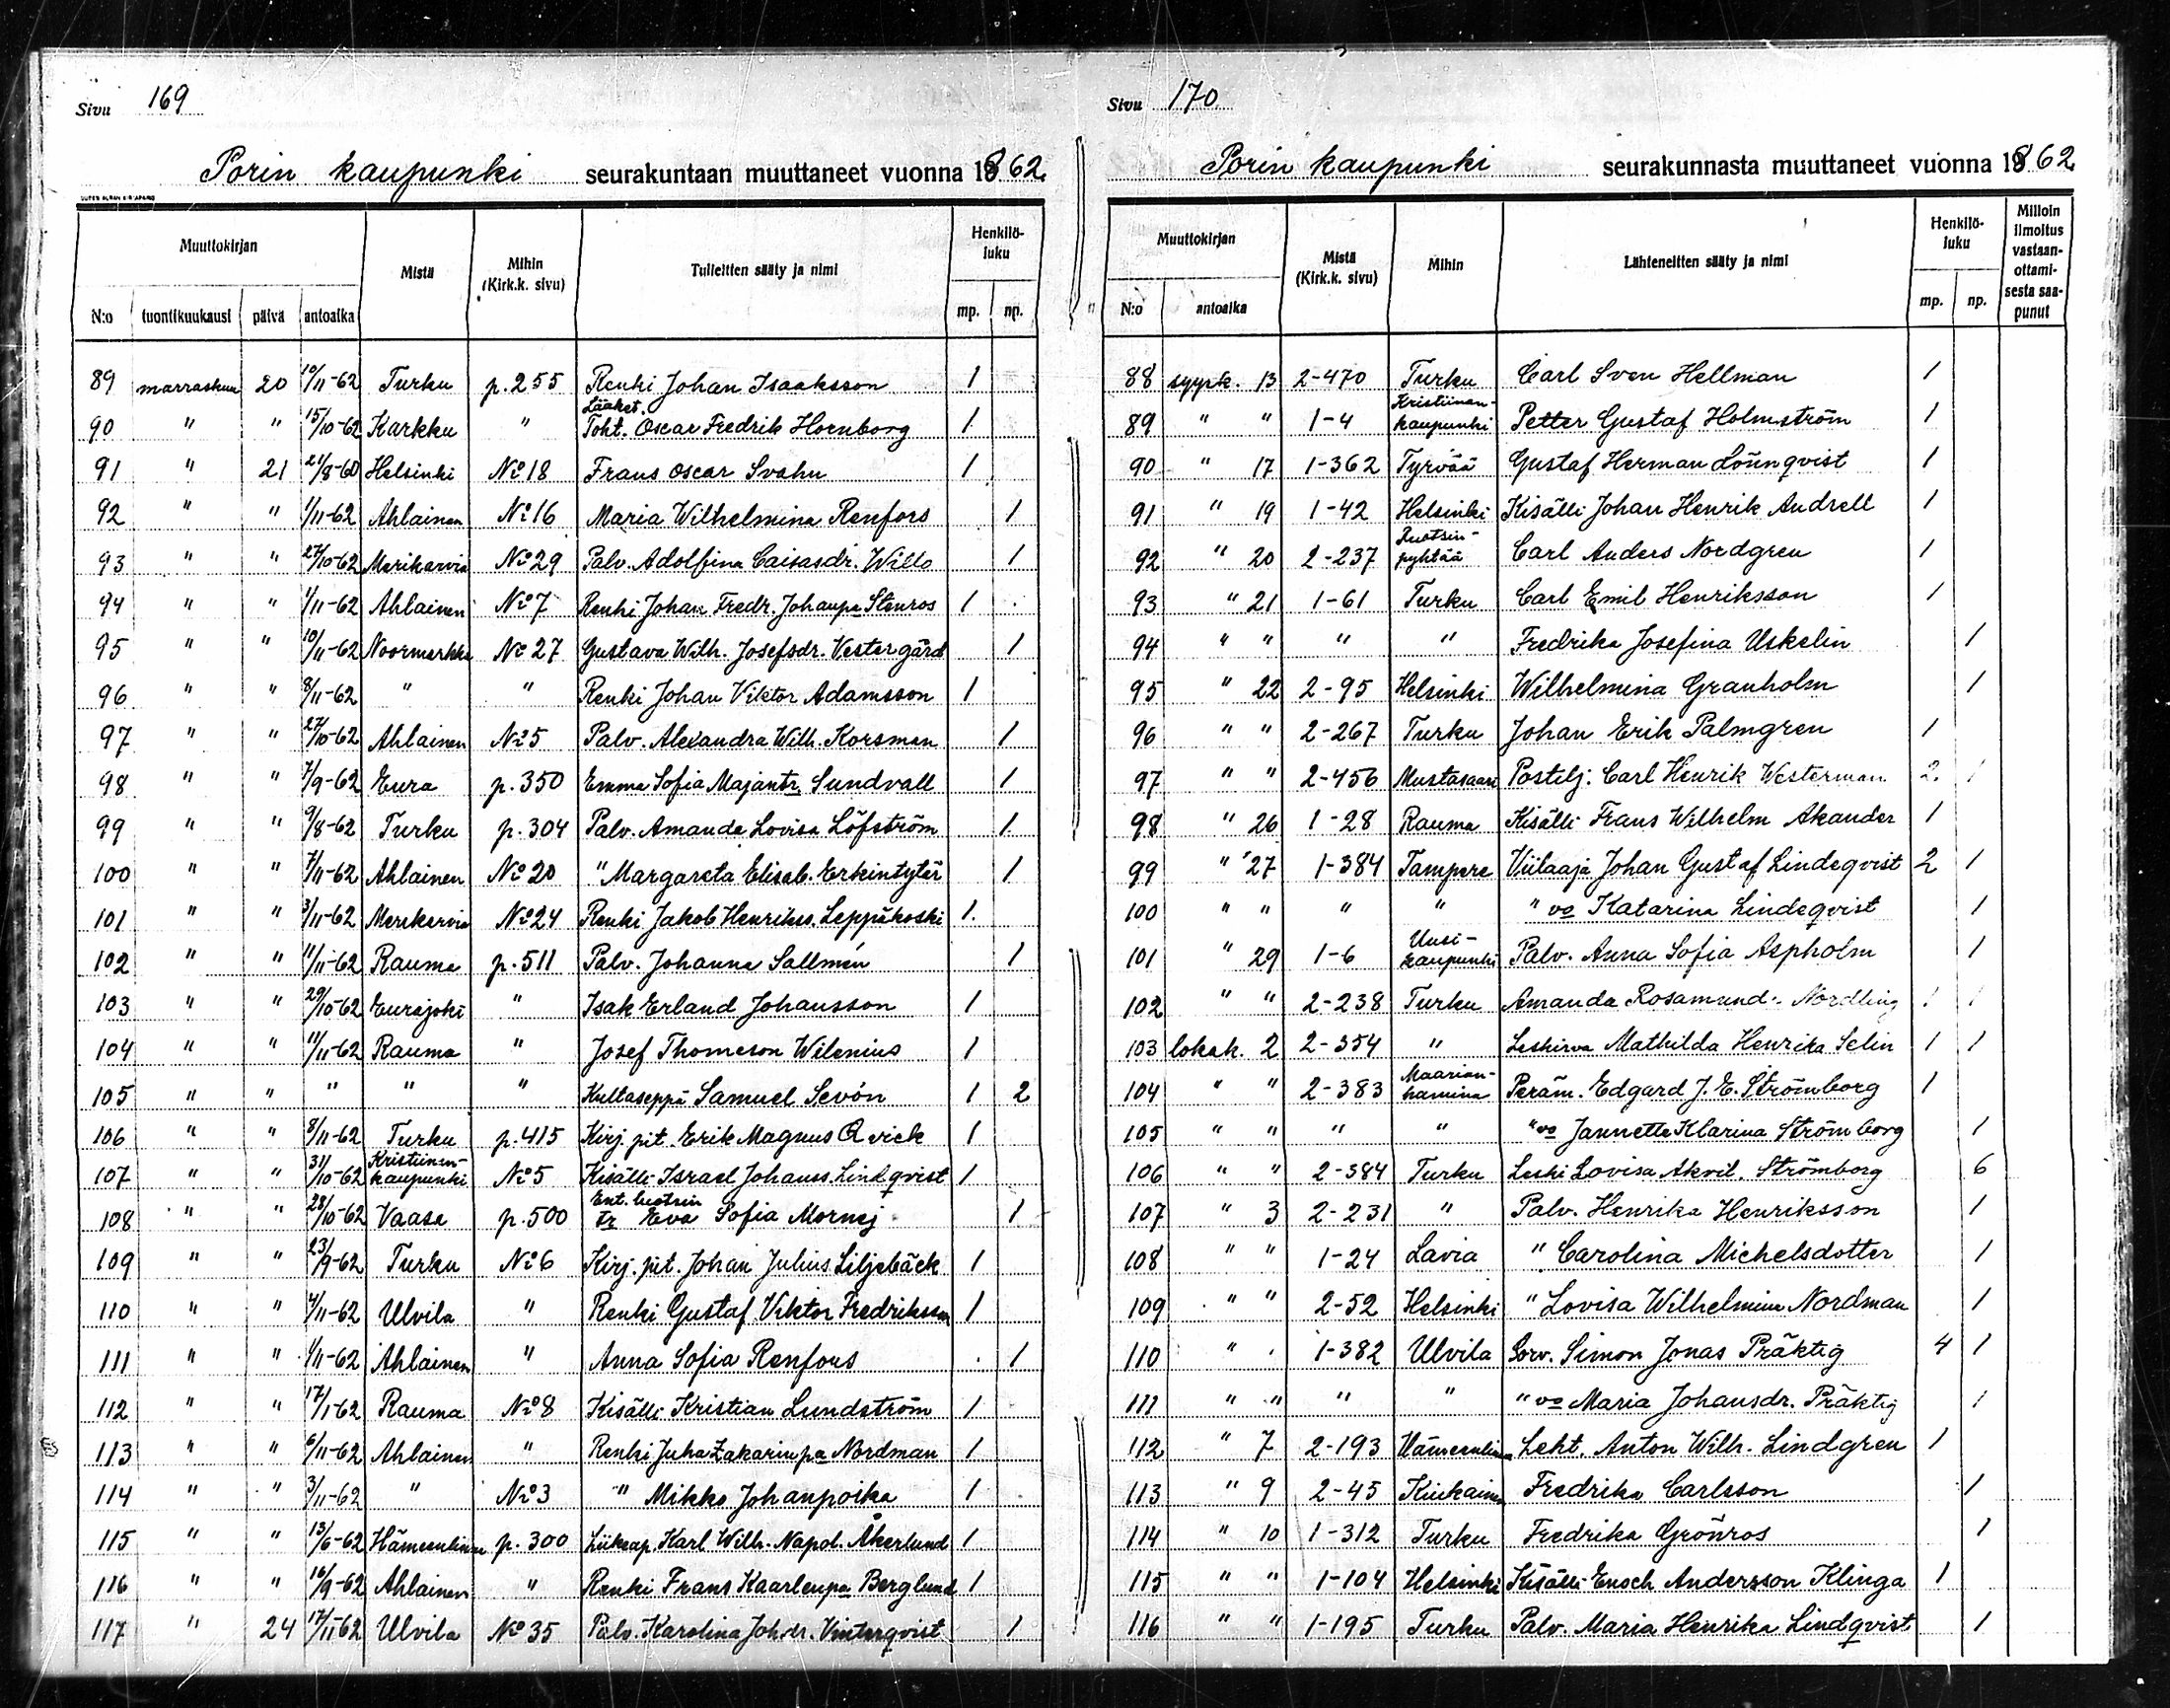 Sivu 169
Porin kaupunki seurakuntaan muuttaneet vuonna 1862.
Muuttokirjan Mistä Mihin (Kirk.k. sivu) Tulleitten sääty ja nimi Henkilö-luku
N:o tuontikuukausi päivä antoaika mp. np.
89 marraskuu 20 10/11-62 Turku p. 255 Renki Johan Isaaksson 1
90 " " 15/10-62 Karkku " Lääket. Toht. Oscar Fredrik Hornborg 1
91 " 21 21/8-60 Helsinki No 18 Frans Oscar Svahn 1
92 " " 1/11-62 Ahlainen No 16 Maria Wilhelmina Renfors 1
93 " " 27/10-62 Merikarvia No 29 Palv. Adolfina Caisasdr. Willo 1
94 " " 1/11-62 Ahlainen No 7 Renki Johan Fredr. Johanpa Stenros 1
95 " " 10/11-62 Noormarkku No 27 Gustava Wilh. Josefsdr. Vestergård 1
96 " " 8/11-62 " " Renki Johan Viktor Adamsson 1
97 " " 27/10-62 Ahlainen No 5 Palv. Alexandra Wilh. Korsman 1
98 " " 7/9-62 Eura p. 350 Emma Sofia Majantr. Sundvall 1
99 " " 9/8-62 Turku p. 304 Palv. Amanda Lovisa Löfström 1
100 " " 7/11-62 Ahlainen No 20 " Margareta Elisab. Erkintytär 1
101 " " 3/11-62 Merikarvia No 24 Renki Jakob Henrikss. Leppäkoski 1
102 " " 11/11-62 Rauma p. 511 Palv. Johanna Sallmén 1
103 " " 29/10-62 Eurajoki " Isak Erland Johansson 1
104 " " 11/11-62 Rauma " Josef Thomeson Wilenius 1
105 " " " " " Kultaseppä Samuel Sevón 1 2
106 " " 8/11-62 Turku p. 415 Kirj. pit. Erik Magnus Qvick 1
107 " " 31/10-62 Kristiinan-kaupunki No 5 Kisälli Israel Johanss. Lindqvist 1
108 " " 28/10-62 Vaasa p. 500 Ent. luotsin tr Eva Sofia Mornej 1
109 " " 23/9-62 Turku No 6 Kirj. pit. Johan Julius Liljebäck 1
110 " " 4/11-62 Ulvila " Renki Gustaf Viktor Fredriksson 1
111 " " 1/11-62 Ahlainen " Anna Sofia Renfors 1
112 " " 17/1-62 Rauma No 8 Kisälli Kristian Lundström 1
113 " " 6/11-62 Ahlainen " Renki Juha Zakarinpa Nordman 1
114 " " 3/11-62 " No 3 " Mikko Johanpoika 1
115 " " 13/6-62 Hämeenlinna p. 300 Liikeap. Karl Wilh. Napol. Åkerlund 1
116 " " 16/9-62 Ahlainen " Renki Frans Kaarlenpa Berglund 1
117 " 24 17/11-62 Ulvila No 35 Palv. Karolina Joh. dr. Vinterqvist 1
Sivu 170
Porin kaupunki seurakunnasta muuttaneet vuonna 1862
Muuttokirjan Mistä (Kirk.k. sivu) Mihin Lähteneitten sääty ja nimi Henkilö-luku Milloin ilmoitus vastaan-ottami-sesta saa-punut
N:o antoaika mp. np.
88 syysk. 13 2-470 Turku Carl Sven Hellman 1
89 " " 1-4 Kristiinan-kaupunki Petter Gustaf Holmström 1
90 " 17 1-362 Tyrvää Gustaf Herman Lönnqvist 1
91 " 19 1-42 Helsinki Kisälli Johan Henrik Andrell 1
92 " 20 2-237 Ruotsin-pyhtää Carl Anders Nordgren 1
93 " 21 1-61 Turku Carl Emil Henriksson 1
94 " " " " Fredrika Josefina Uskelin 1
95 " 22 2-95 Helsinki Wilhelmina Granholm 1
96 " " 2-267 Turku Johan Erik Palmgren 1
97 " " 2-456 Mustasaari Postilj. Carl Henrik Westerman 2 1
98 " 26 1-28 Rauma Kisälli Frans Wilhelm Akander 1
99 " 27 1-384 Tampere Viilaaja Johan Gustaf Lindeqvist 2 1
100 " " " " " vo Katarina Lindeqvist 1
101 " 29 1-6 Uusi-kaupunki Palv. Anna Sofia Aspholm 1
102 " " 2-238 Turku Amanda Rosamunda Nordling 1 1
103 lokak. 2 2-354 " Leskirva Mathilda Henrika Selin 1 1
104 " " 2-383 Maarian-hamina Peräm. Edgard J. E. Strömborg 1
105 " " " " " vo Jannette Klarina Strömborg 1
106 " " 2-384 Turku Leski Lovisa Akvil. Strömborg 6
107 " 3 2-231 " Palv. Henrika Henriksson 1
108 " " 1-24 Lavia " Carolina Michelsdotter 1
109 " " 2-52 Helsinki " Lovisa Wilhelmina Nordman 1
110 " " 1-382 Ulvila Sorv. Simon Jonas Präktig 4 1
111 " " " " " vo Maria Johansdr. Präktig 1
112 " 7 2-193 Hämeenlinna Leht. Anton Wilh. Lindgren 1
113 " 9 2-45 Kiukainen Fredrika Carlsson 1
114 " 10 1-312 Turku Fredrika Grönros 1
115 " " 1-104 Helsinki Kisälli Enoch Andersson Klinga 1
116 " " 1-195 Turku Palv. Maria Henrika Lindqvist 1